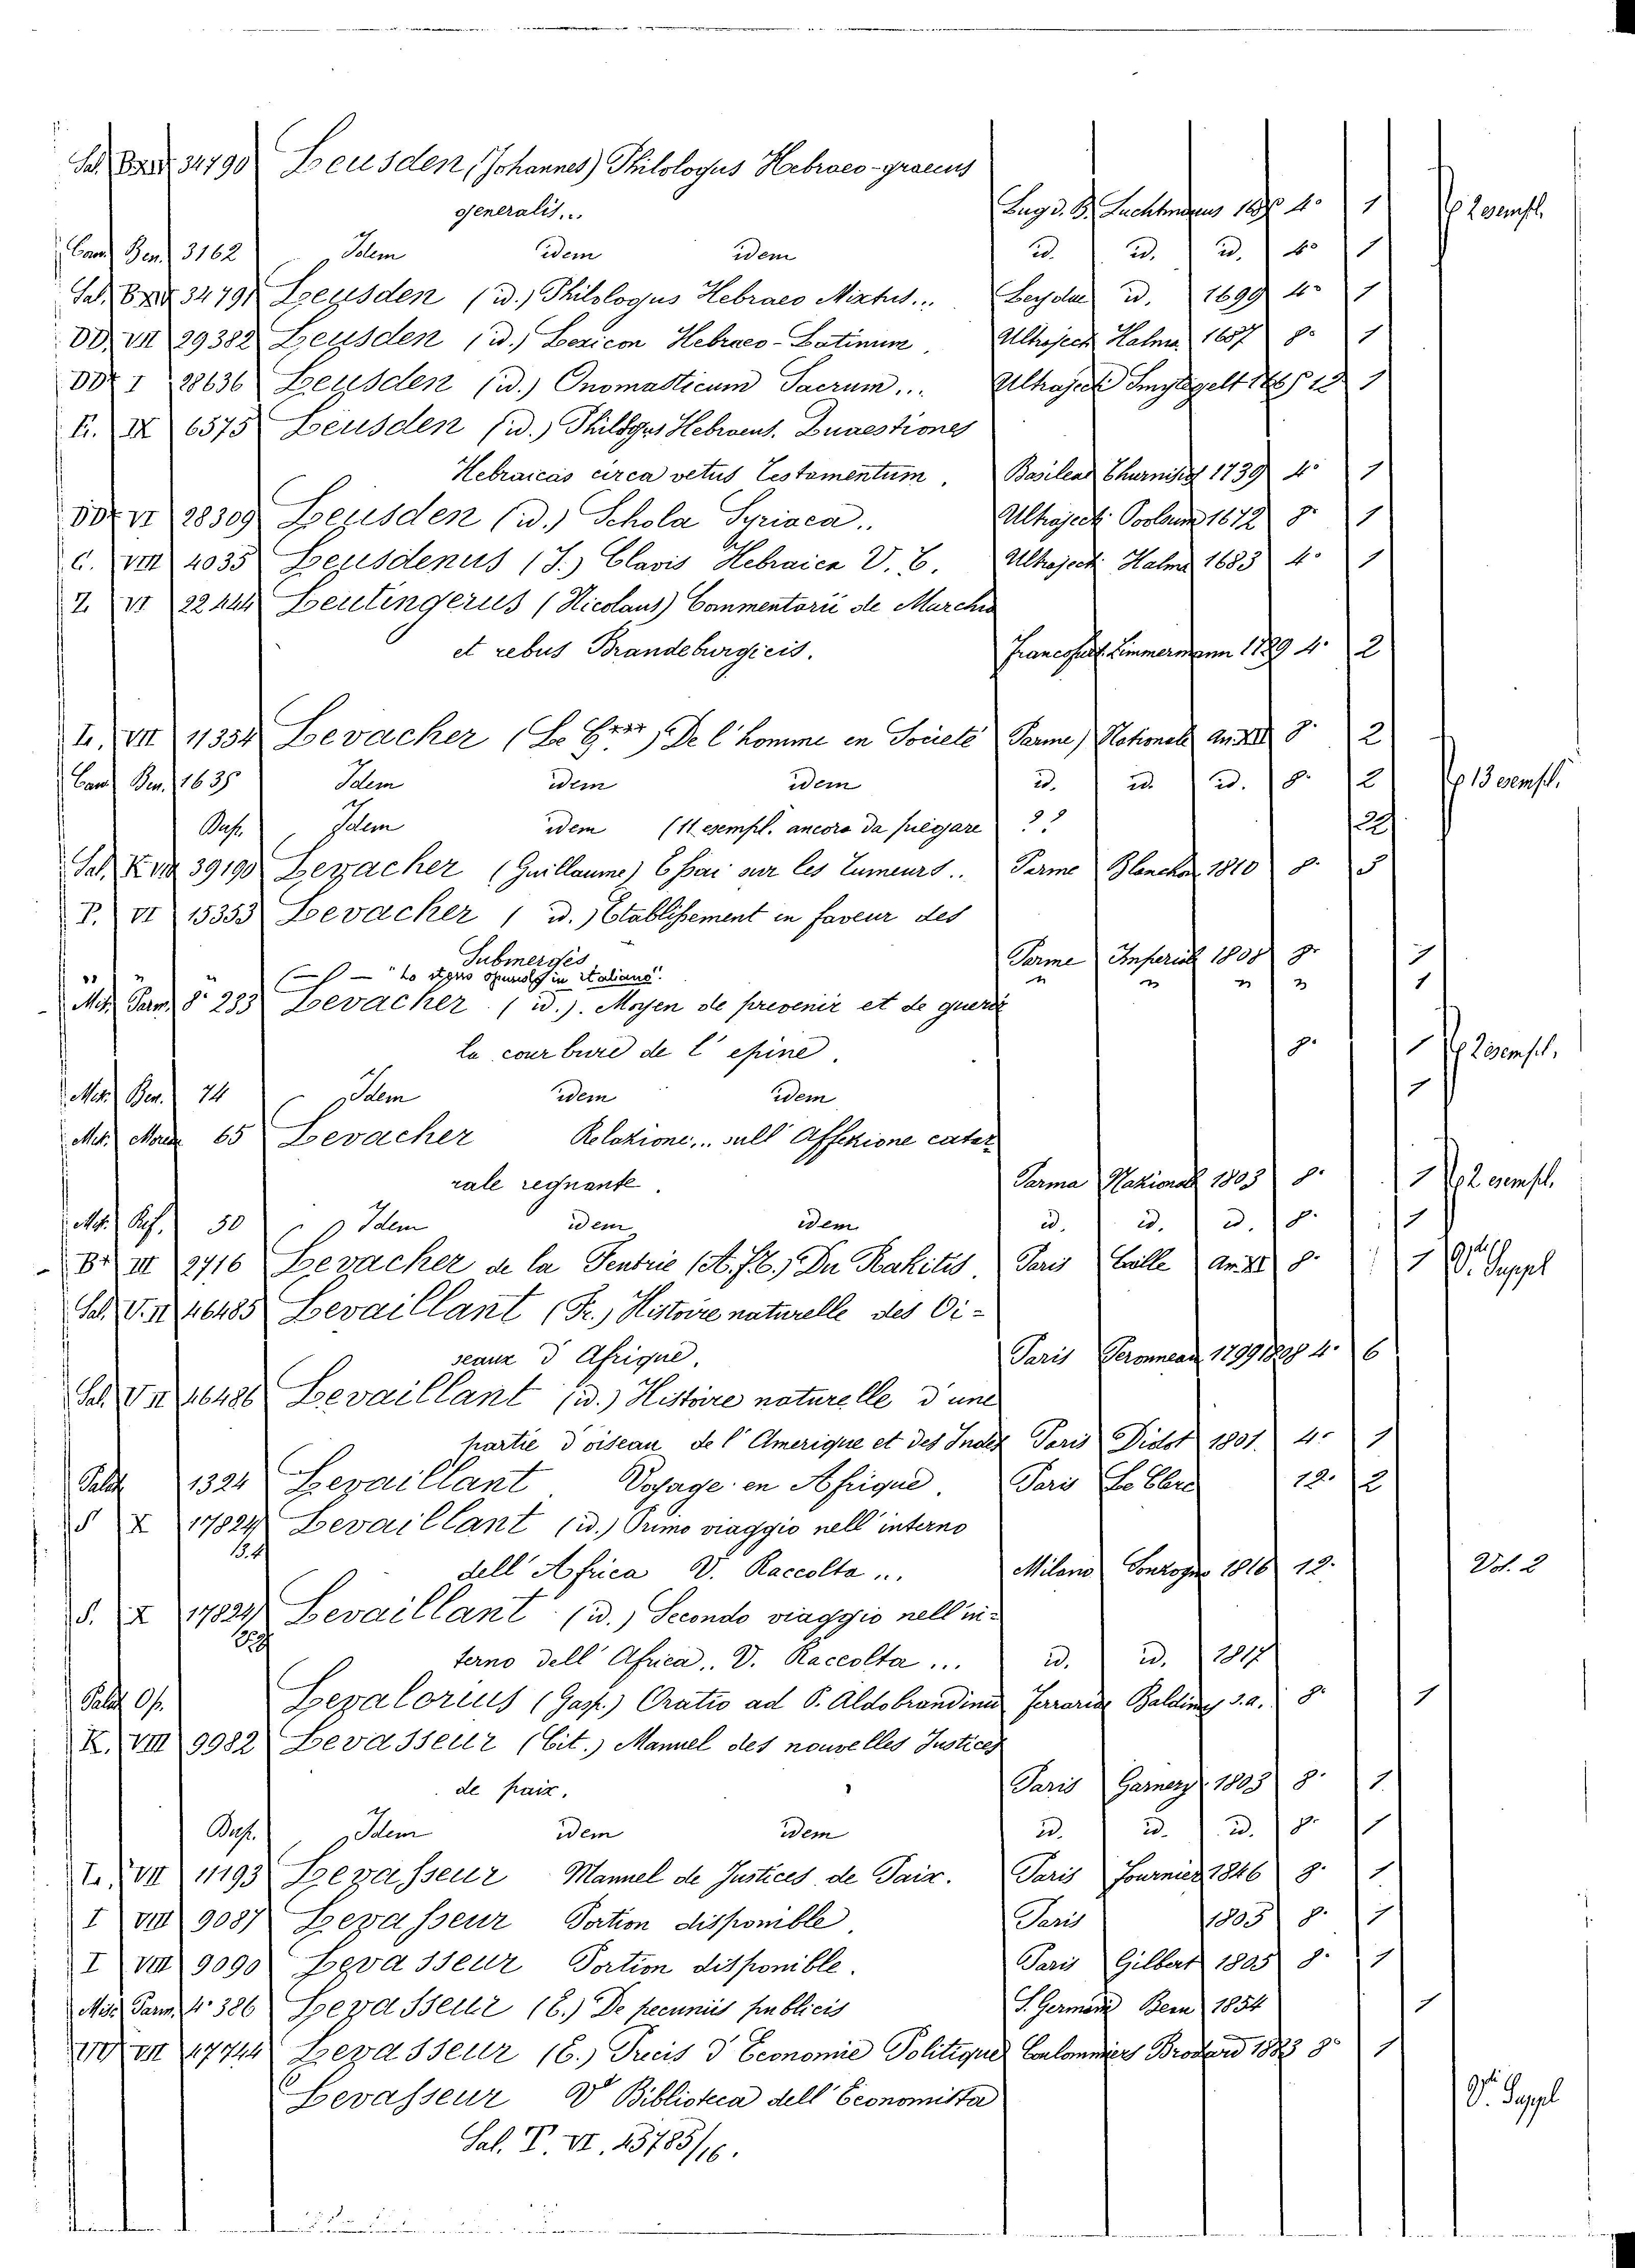 34790 Leusden (Johannes) Philologus Hebraeo-graecus
generalis... Lug. d. B. Luchtmans 4º 1
Cam. Ben. 3162 Idem idem idem id. id. id. 4º 1
34791 Leusden (id.) Philologus Hebraeo Mixtus... id. 1699 4º 1
DD. VII 29382 Leusden (id.) Lexicon Hebraeo-Latinum. Ultrajecti Halma 1687 8º 1
I 28636 Leusden (id.) Onomasticum Sacrum... Ultrajecti 12 1
6575 Leusden (id.) Hebraeus. Quaestiones
Hebraicas circa vetus Testamentum. Basileae Thurnisii 1739 4º 1
VI 28309 Leusden (id.) Schola Syriaca.. Ultrajecti 1672 8º 1
C. VIII 4035 Leusdenus (J.) Clavis Hebraica V. T. Ultrajecti Halma 1683 4º 1
Z. VI Leutingerus (Nicolaus) Commentarii de Marchia
et rebus Brandeburgicis. Francofurt Zimmermann 1729 4º 2
L. VII 11354 Levacher (Le Gres) De l'homme en Societé Parme Nationale An XII 8º 2
Cam. Ben. 1635 Idem idem idem id. id. id. 8º 2 Np 13 esempl.
Idem idem (11 esempl. ancora da piegare ??
39190 Levacher (Guillaume) Essai sur les Tumeurs.. Parme Blanchon 1810 8º 5
P. VI 15353 Levacher (id.) Etablissement in faveur des
Submergés Parme Imperial 1808 8º 1
" " " — "Lo stesso opuscolo in italiano". " " " " 1
Misc. Parm. 8º 283 Levacher (id.). Moyen de prevenir et de guerir
la courbure de l'epine. 8º 1 Np 2 esempl.
Misc. Ben. 74 Idem idem idem 1
65 Levacher Relazione... sull' Affezione catar
rale regnante. Parma Nazionale 1803 8º 1 Np 2 esempl.
50 Idem idem idem id. id. id. 8º 1
III 2716 Levacher de la Fentrie (A. F. T.) Du Rakitis. Paris Crille An XI 8º 1 Vi Suppl
Sal. V. II 46485 Levaillant (Fr.) Histoire naturelle des Oi-
seaux d'Afrique. Paris Peronneau 1799 1808 4º 6
Sal. V II 46486 Levaillant (id.) Histoire naturelle d'une
partie d'oiseau de l'Amerique et des Indes Paris Didot 1801. 4º 1
Palat 1324 Levaillant Voyage en Afrique. Paris Le Clerc 12º 2
S X 17824/3.4 Levaillant (id.) Primo viaggio nell'interno
dell'Africa V. Raccolta... Milano Sonzogno 1816 12º Vol. 2
S. X 17824 Levaillant (id.) Secondo viaggio nell'in-
terno dell'Africa.. V. Raccolta... id. id. 1817
Palat Op. Levalorius (Gasp.) Oratio ad P. Aldobrandinum Ferrariae Baldinus s.a. 8º 1
K. VIII 9982 Levasseur (Cit.) Manuel des nouvelles Justices
de paix. Paris Garnery 1803 8º 1
Idem idem idem id. id. id. 8º 1
I. VII 11193 Levasseur Manuel de Justices de Paix. Paris Fournier 1846 8º 1
I VIII 9087 Levasseur Portion disponible. Paris 1805 8º 1
I VIII 9090 Levasseur Portion disponible. Paris Gilbert 1805 8º 1
Misc. Parm. 4º 386 Levasseur (E.) De pecuniis publicis S. Germani Beau 1854 1
VII 47744 Levasseur (E.) Precis d'Economie Politique Coulommiers Brodard 1883 8º 1
Levasseur Vi Biblioteca dell'Economista Vi Suppl
Sal. T. VI. 45785/16.